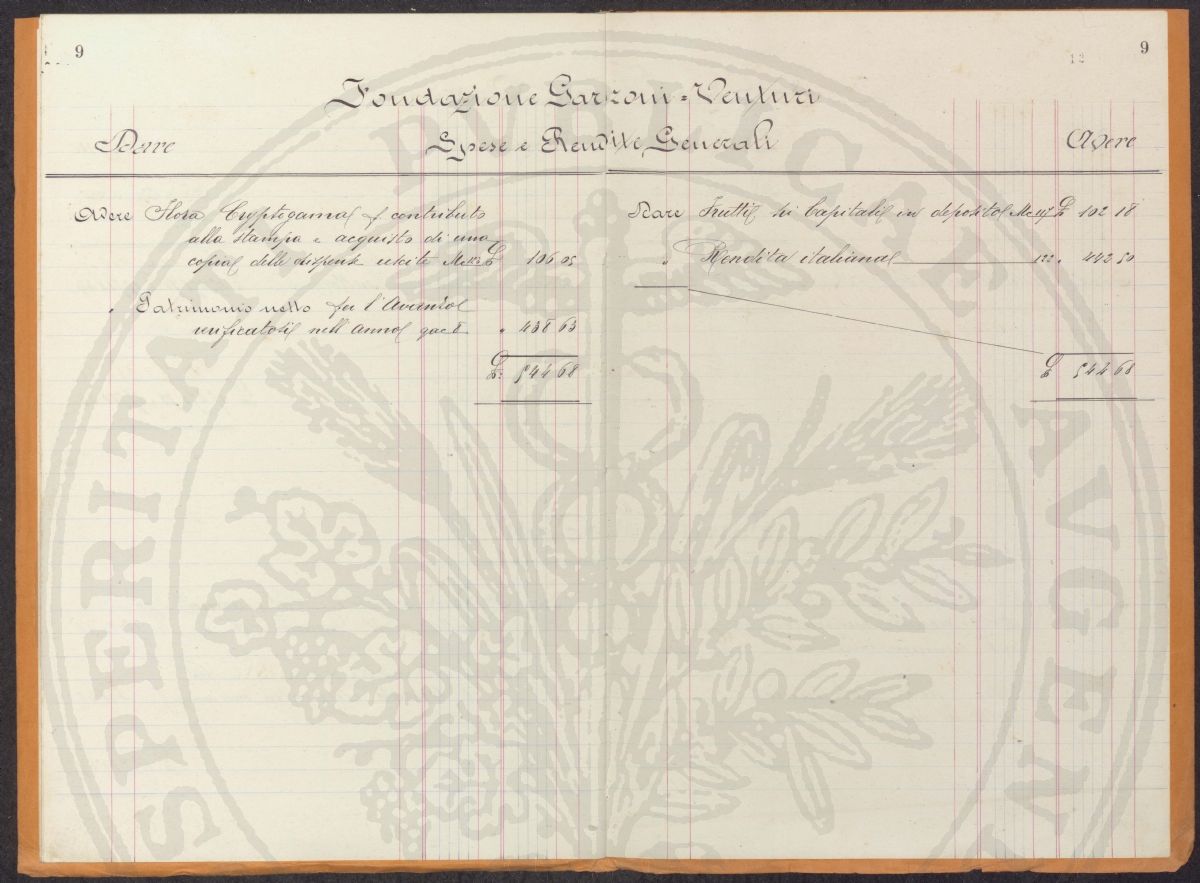 9
9
12
Fondazione Garzoni=Venturi
Dare
Spese e Rendite Generali
Avere
Avere Flora Cryptogama p. contributo
alla stampa e acquisto di una
copia delle dispense uscite £ 106 05
" Patrimonio netto per l'Avanzo
verificatosi nell'anno " 438 63
£: 544 68
Dare Frutti di Capitali in deposito £ 102 18
" Rendita italiana 122 " 442 50
£ 544 68
PVBLICAE
PROSPERITATI
AVGENDAE